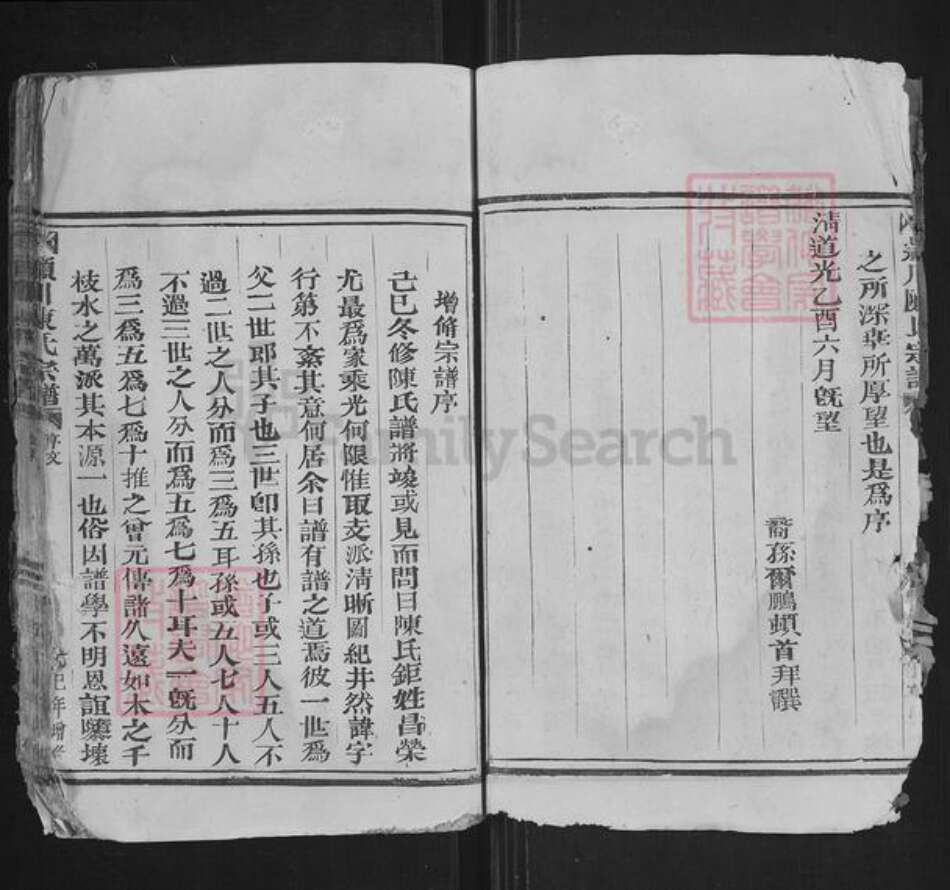 之所深幸所厚望也是爲序
清道光乙酉六月旣望
裔孫爾鵬頓首拜譔
增脩宗譜序
己巳冬修陳氏譜將竣或見而問曰陳氏鉅姓昌榮
尤最爲家乘光何限惟取支派淸晰圖紀井然諱字
行第不紊其意何居余曰譜有譜之道焉彼一世爲
父二世耶其子也三世卽其孫也子或三人五人不
過二世之人分而爲三爲五耳孫或五人七人十人
不過三世之人分而爲五爲七爲十耳夫一旣分而
爲三爲五爲七爲十推之曾元傳諸久遠如木之千
枝水之萬派其本源一也俗因譜學不明恩誼隳壞
潁川陳氏宗譜
序文
己巳年增修
FamilySearch